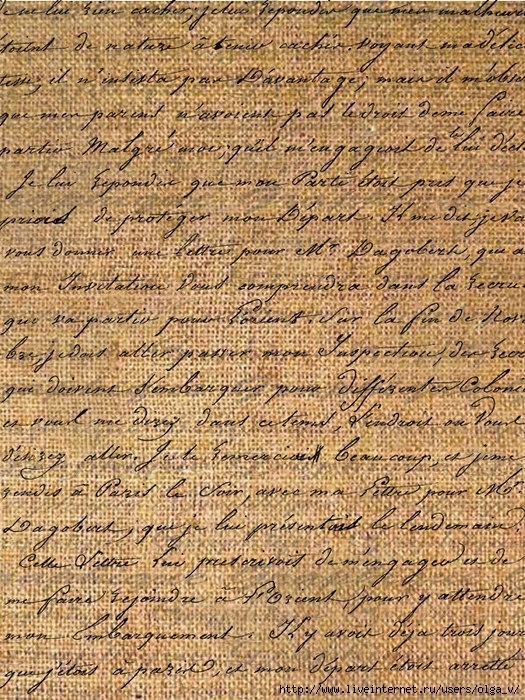 ne lui rien cacher, je lui repondis que mes malheurs
étoient de nature à tenir cachés, voyant ma délica
tesse, il n'insista pas Davantage; mais il m'obser
que mes parens n'avoient pas le droit de me faire
partir Malgré moi; qu'il m'engageoit de lui décl
Je lui repondis que mon Parti étoit pris que je
priois de protéger mon Départ. Il me dit je va
vous donner une lettre pour Mr. Dagobert, qui a
mon Invitation vous comprendra dans la recrue
qui va partir pour Lorient. Sur la fin de Nov
bre, je dois aller passer mon Inspection, des recr
qui doivent s'embarquer pour différentes Coloni
es vous me direz dans ce tems, l'endroit ou vous
désirez aller. Je le remerciai beaucoup, et je me
rendis à Paris le Soir, avec ma lettre pour Mr.
Dagobert, que je lui présentois le lendemain.
Cette lettre lui prescrivoit de m'engager et de
me faire rejoindre à L'Orient, pour y attendre
mon Embarquement. Il y avoit déja trois jour
que j'étois à paris, et mon départ étoit arretté
http://www.liveinternet.ru/users/olga_v/